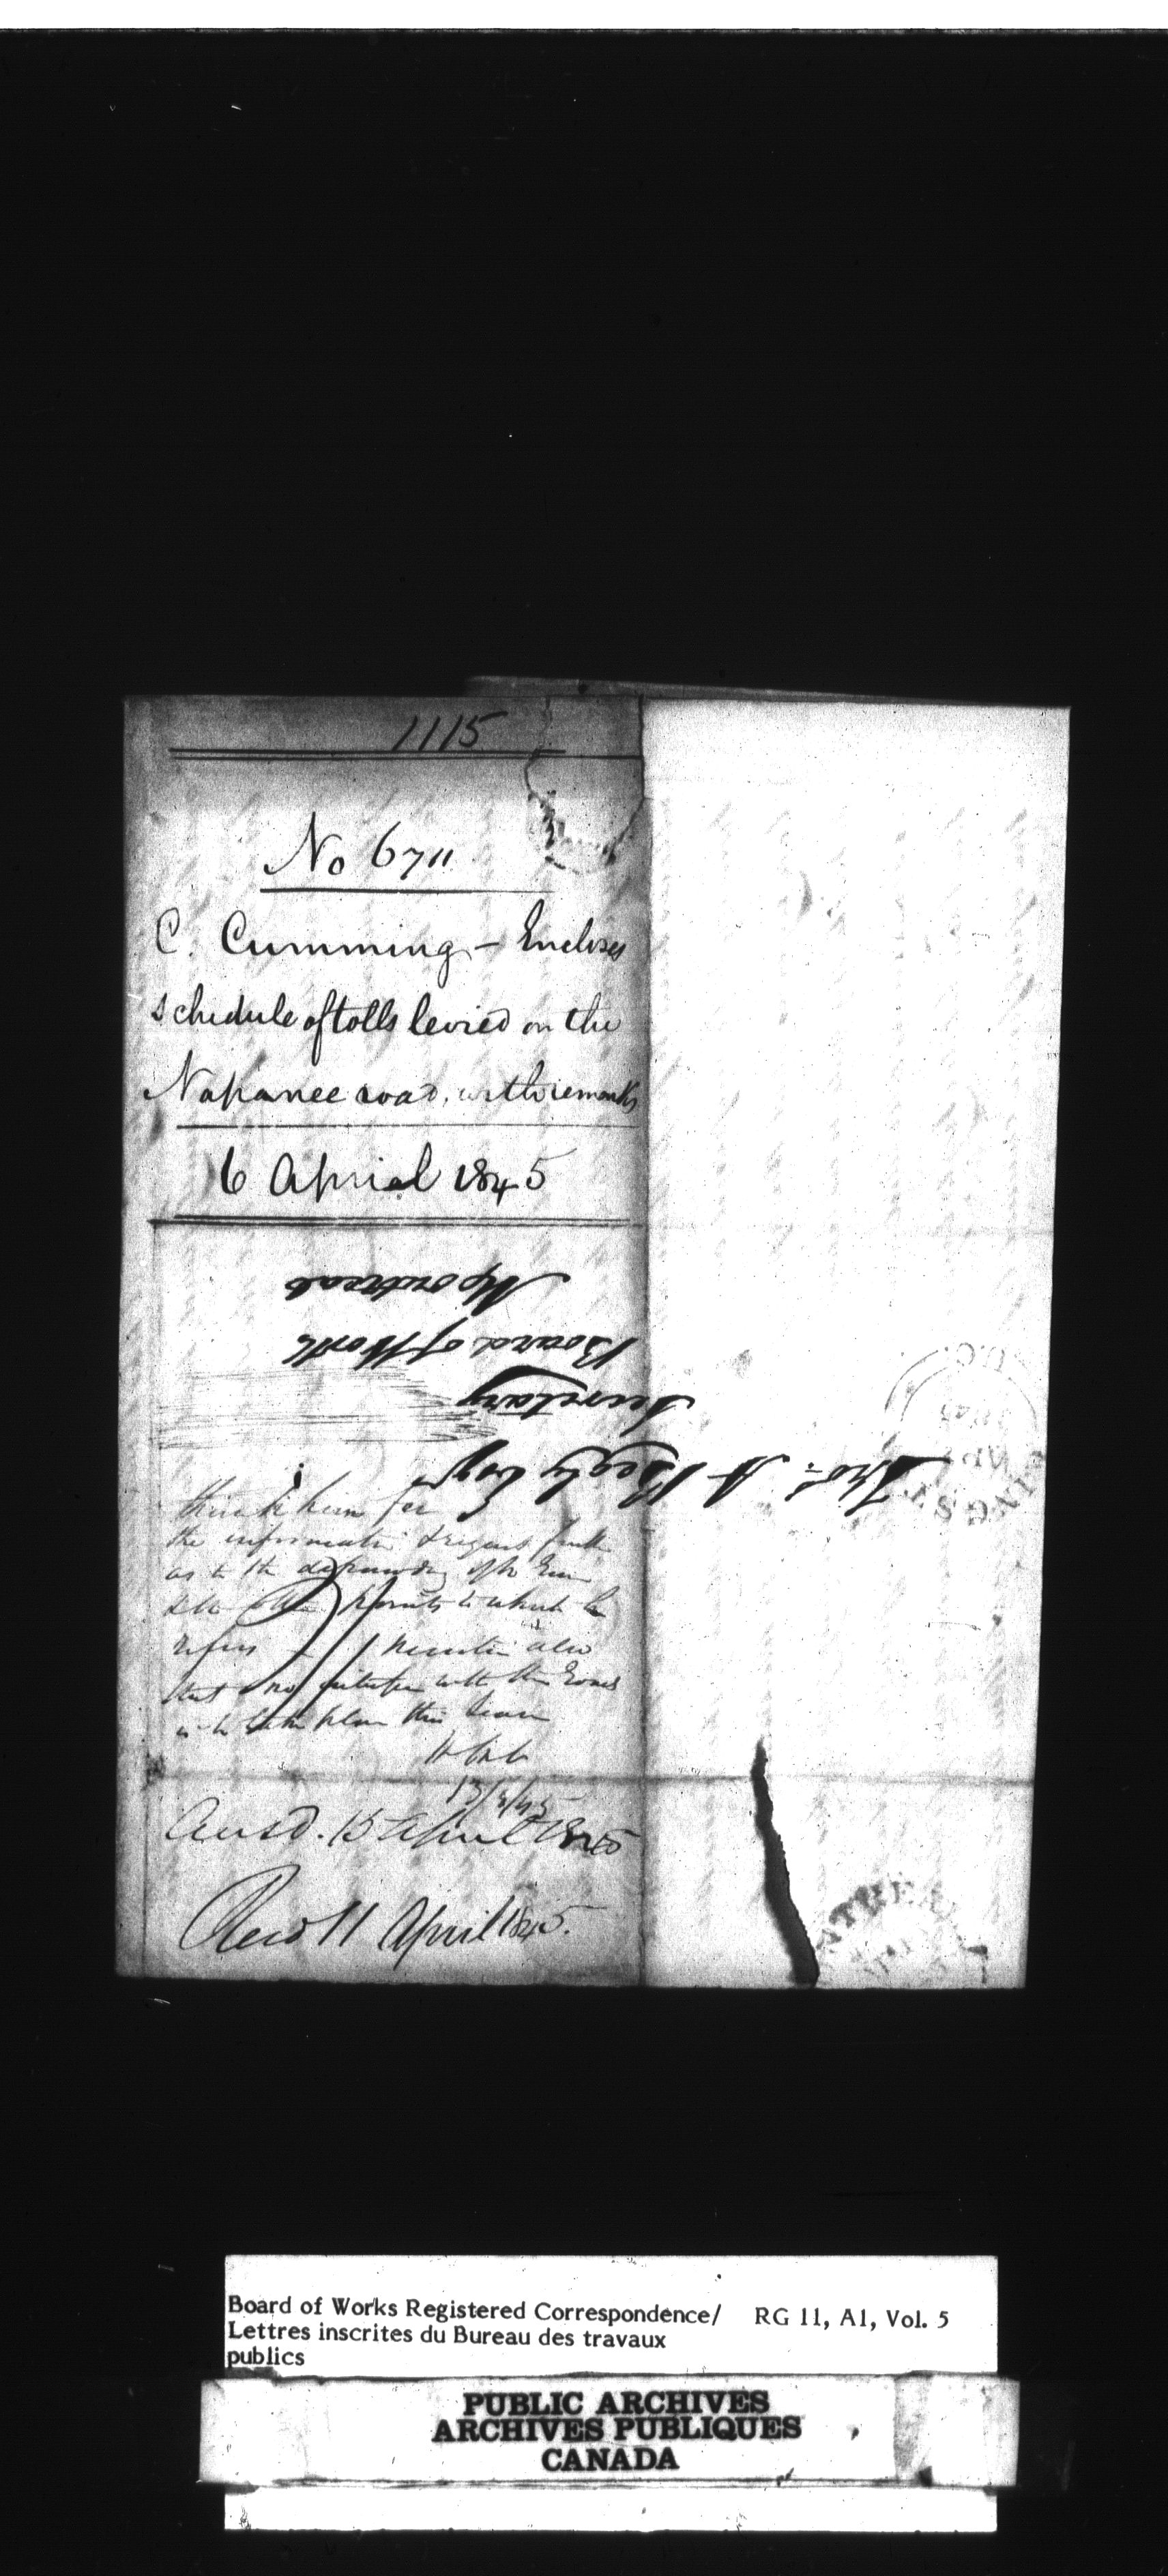 1115
No 6711
C. Cumming - Encloses
schedule of tolls levied on the
Napanee road, with remarks
6 April 1845
Thos. A Begly Esqr
Secretary
Board of Works
Montreal
thank him for
the information & request
as to the
points to which he
refers mention also
that no with the
this
13/4/45
Ansd. 15 April 1845
Recd 11 April 1845.
Board of Works Registered Correspondence/ RG 11, A1, Vol. 5
Lettres inscrites du Bureau des travaux
publics
PUBLIC ARCHIVES
ARCHIVES PUBLIQUES
CANADA